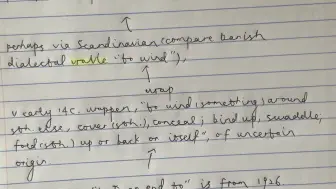 perhaps via Scandinavian (compare Danish
dialectal vralle "to wind"),
wrap
v early 14c. wrappen, "to wind (something) around
sth else, cover (sth.), conceal; bind up, swaddle,
fold (sth.) up or back on itself", of uncertain
origin
end to" is from 1926